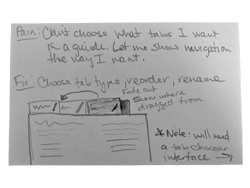 Pain: Can't choose what tabs I want
in a guide. Let me show navigation
the way I want.
Fix: Choose tab type, reorder, rename
Fade out
Show where
dragged from
* Note: will need
a tab chooser
interface →